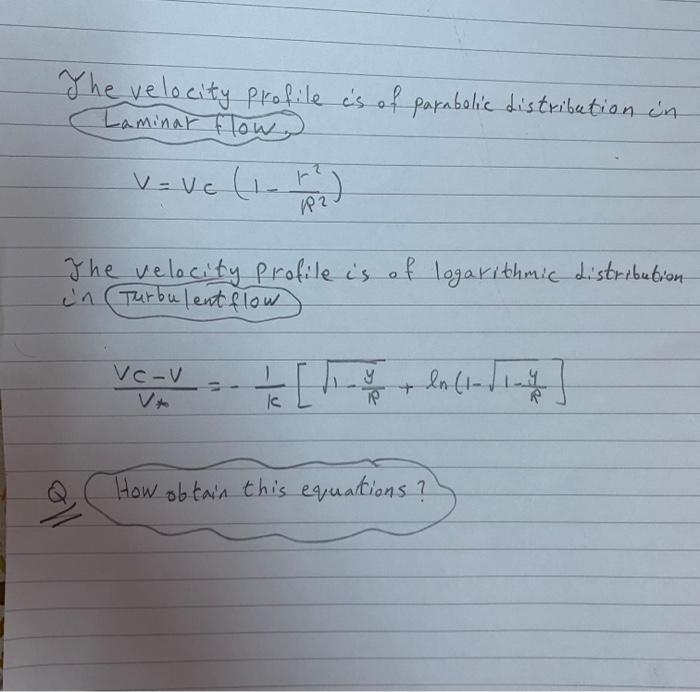 The velocity profile is of parabolic distribution in
Laminar flow.
V = Vc (1 - r²/R²)
The velocity profile is of logarithmic distribution
in Turbulent flow
(Vc - V)/V* = - 1/k [ √(1 - y/R) + ln (1 - √(1 - y/R) ]
Q How obtain this equations ?